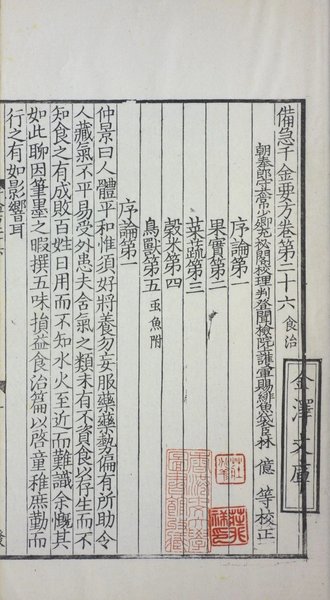 備急千金要方卷第二十六 食治
朝奉郎守太常少卿充秘閣校理判登聞檢院護軍賜緋魚袋臣林 億 等校正
序論第一
果實第二
菜蔬第三
穀米第四
鳥獸第五 虫魚附
序論第一
仲景曰人體平和惟須好將養勿妄服藥藥勢偏有所助令
人藏氣不平易受外患夫含氣之類未有不資食以存生而不
知食之有成敗百姓日用而不知水火至近而難識余慨其
如此聊因筆墨之暇撰五味損益食治篇以啓童稚庶勤而
行之有如影響耳
金澤文庫